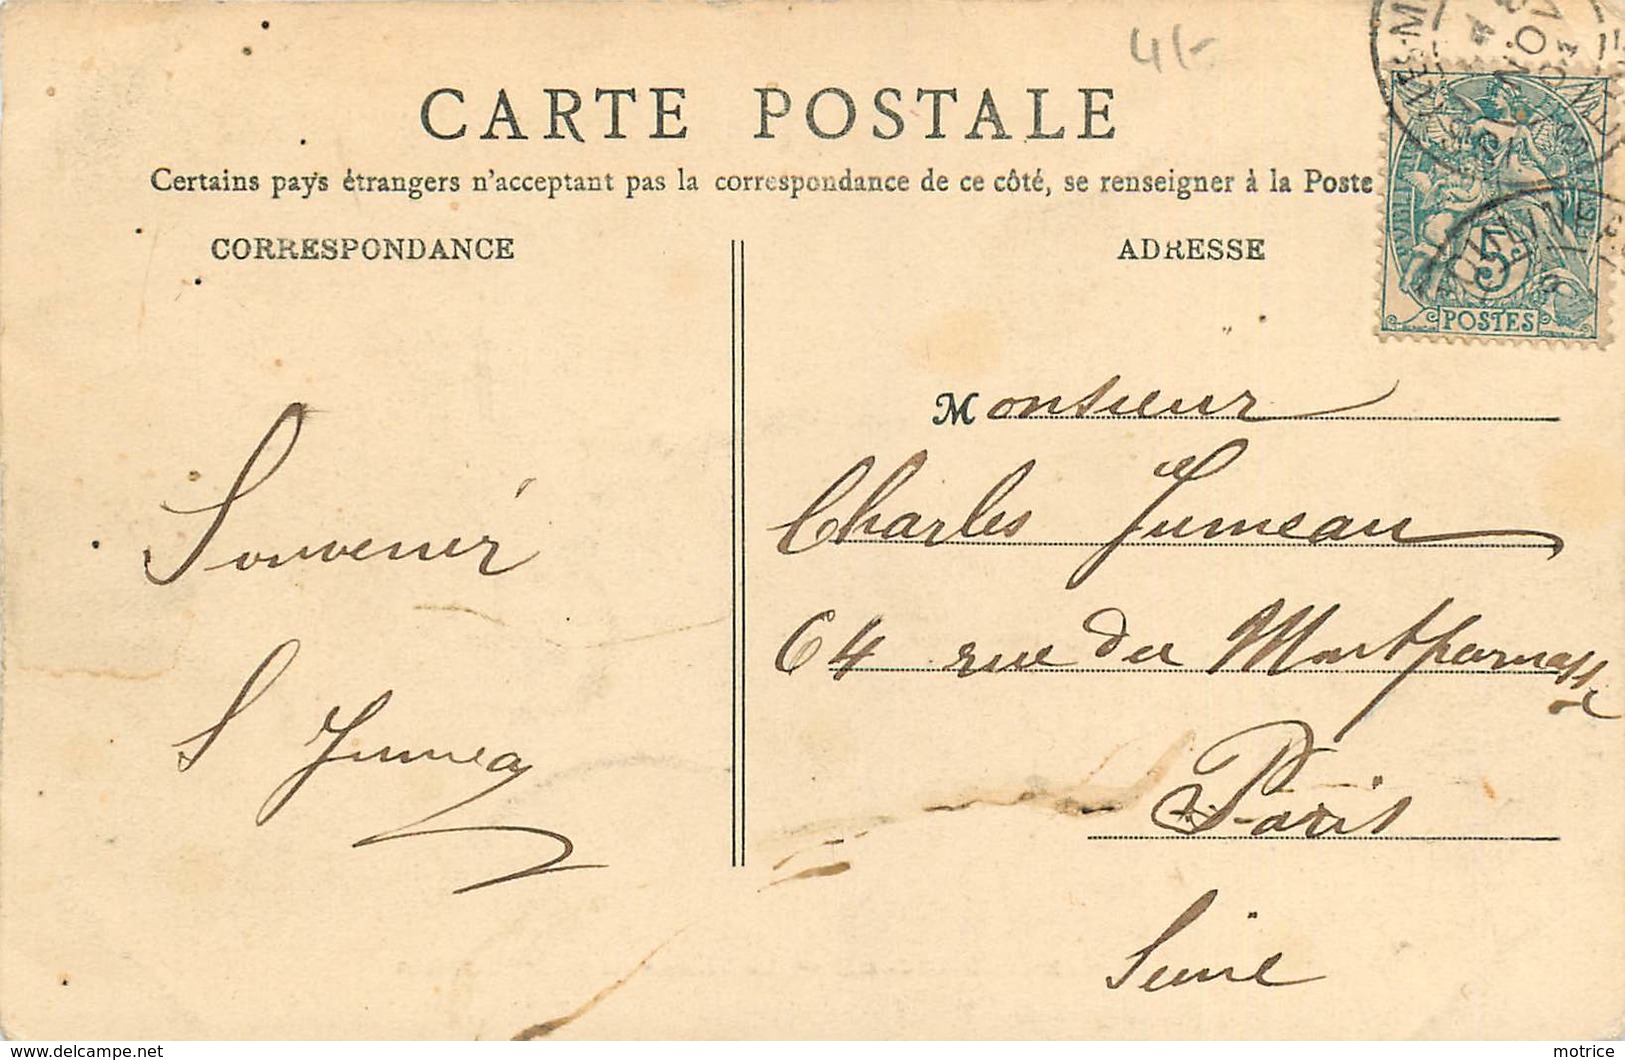 41-
CARTE POSTALE
Certains pays étrangers n'acceptant pas la correspondance de ce côté, se renseigner à la Poste
CORRESPONDANCE
ADRESSE
5
POSTES
Monsieur
Charles Jumeau
64 rue du Montparnasse
Paris
Seine
Souvenir
S Jumeau
delcampe.net
motrice